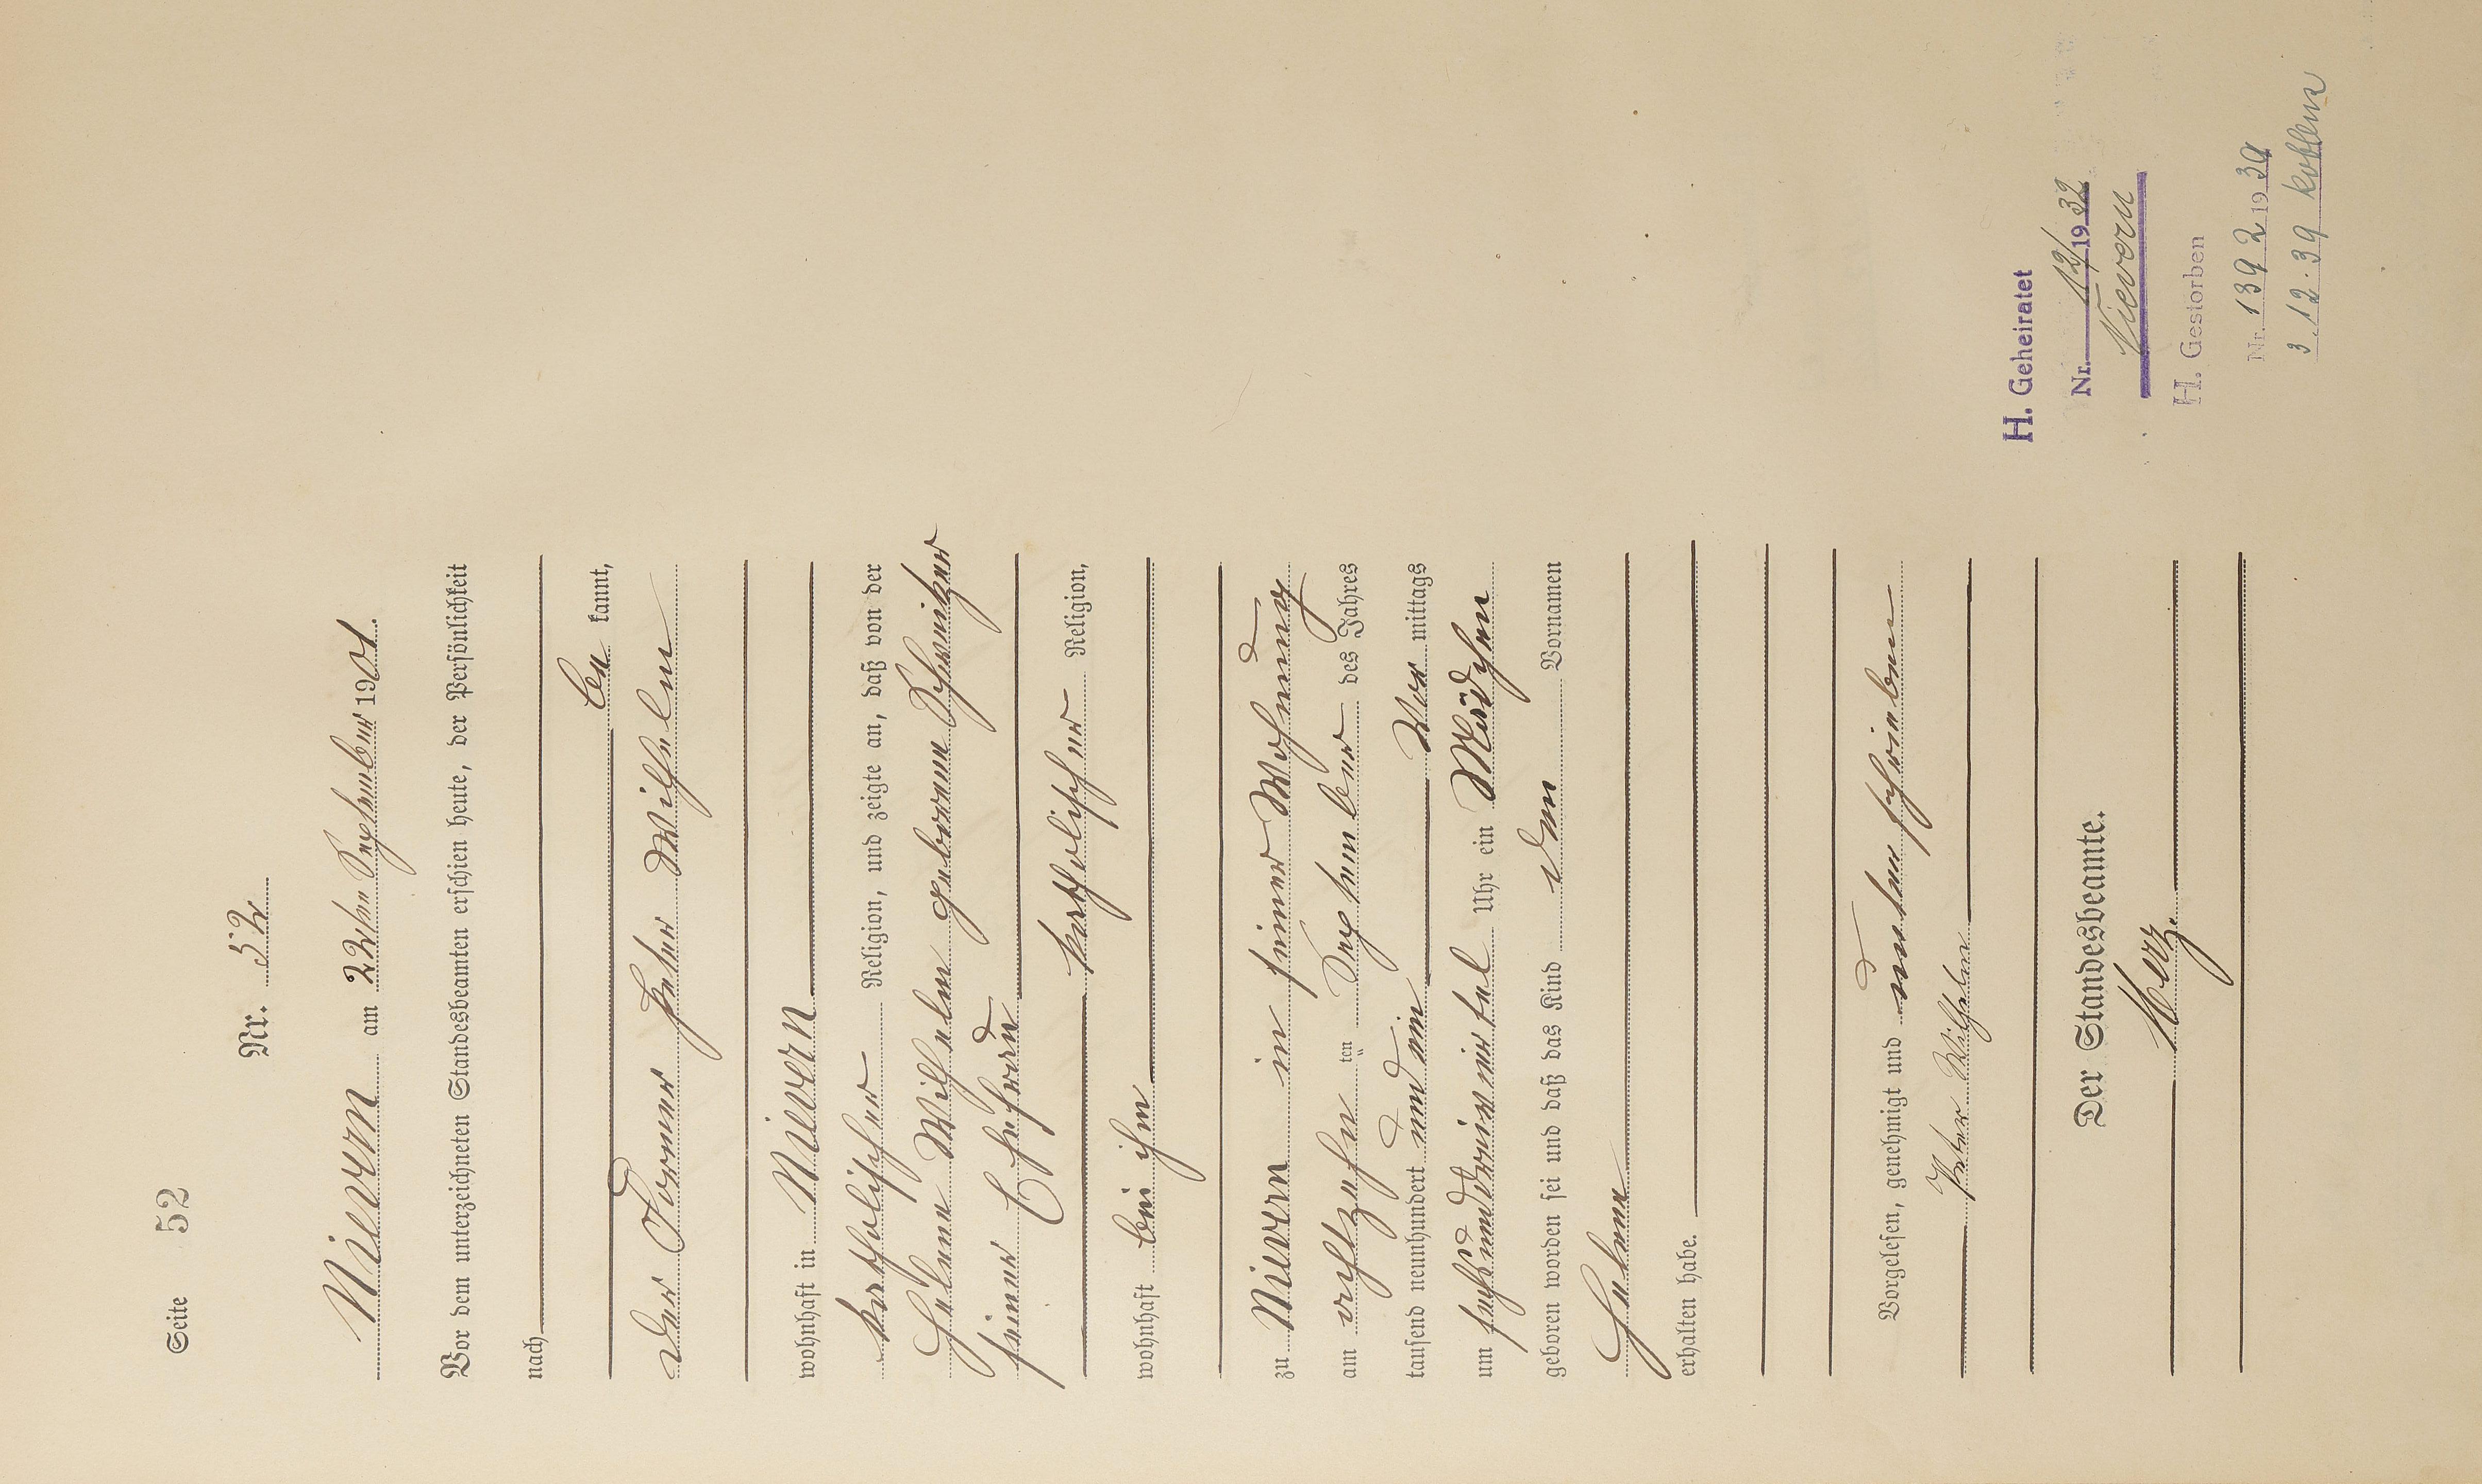 Seite 52
Nr. 52
Nievern am 22ten September 1901.
Vor dem unterzeichneten Standesbeamten erschien heute, der Persönlichkeit
nach
be kannt,
der Former Peter Wilhelm
wohnhaft in Nievern
katholischer Religion, und zeigte an, daß von der
Helene Wilhelm geborenen Schweitzer
seiner Ehefrau
katholischer Religion,
wohnhaft bei ihm
zu Nievern in seiner Wohnung
am achtzehn ten September des Jahres
tausend neunhundert und ein Vor mittags
um sechsunddreiviertel Uhr ein Mädchen
geboren worden sei und daß das Kind den Vornamen
Helene
erhalten habe.
Vorgelesen, genehmigt und unterschrieben
Peter Wilhelm
Der Standesbeamte.
Herz.
H. Geheiratet
Nr. 12/1932
Nievern
H. Gestorben
Nr. 1392 1939
3.12.39 Koblenz